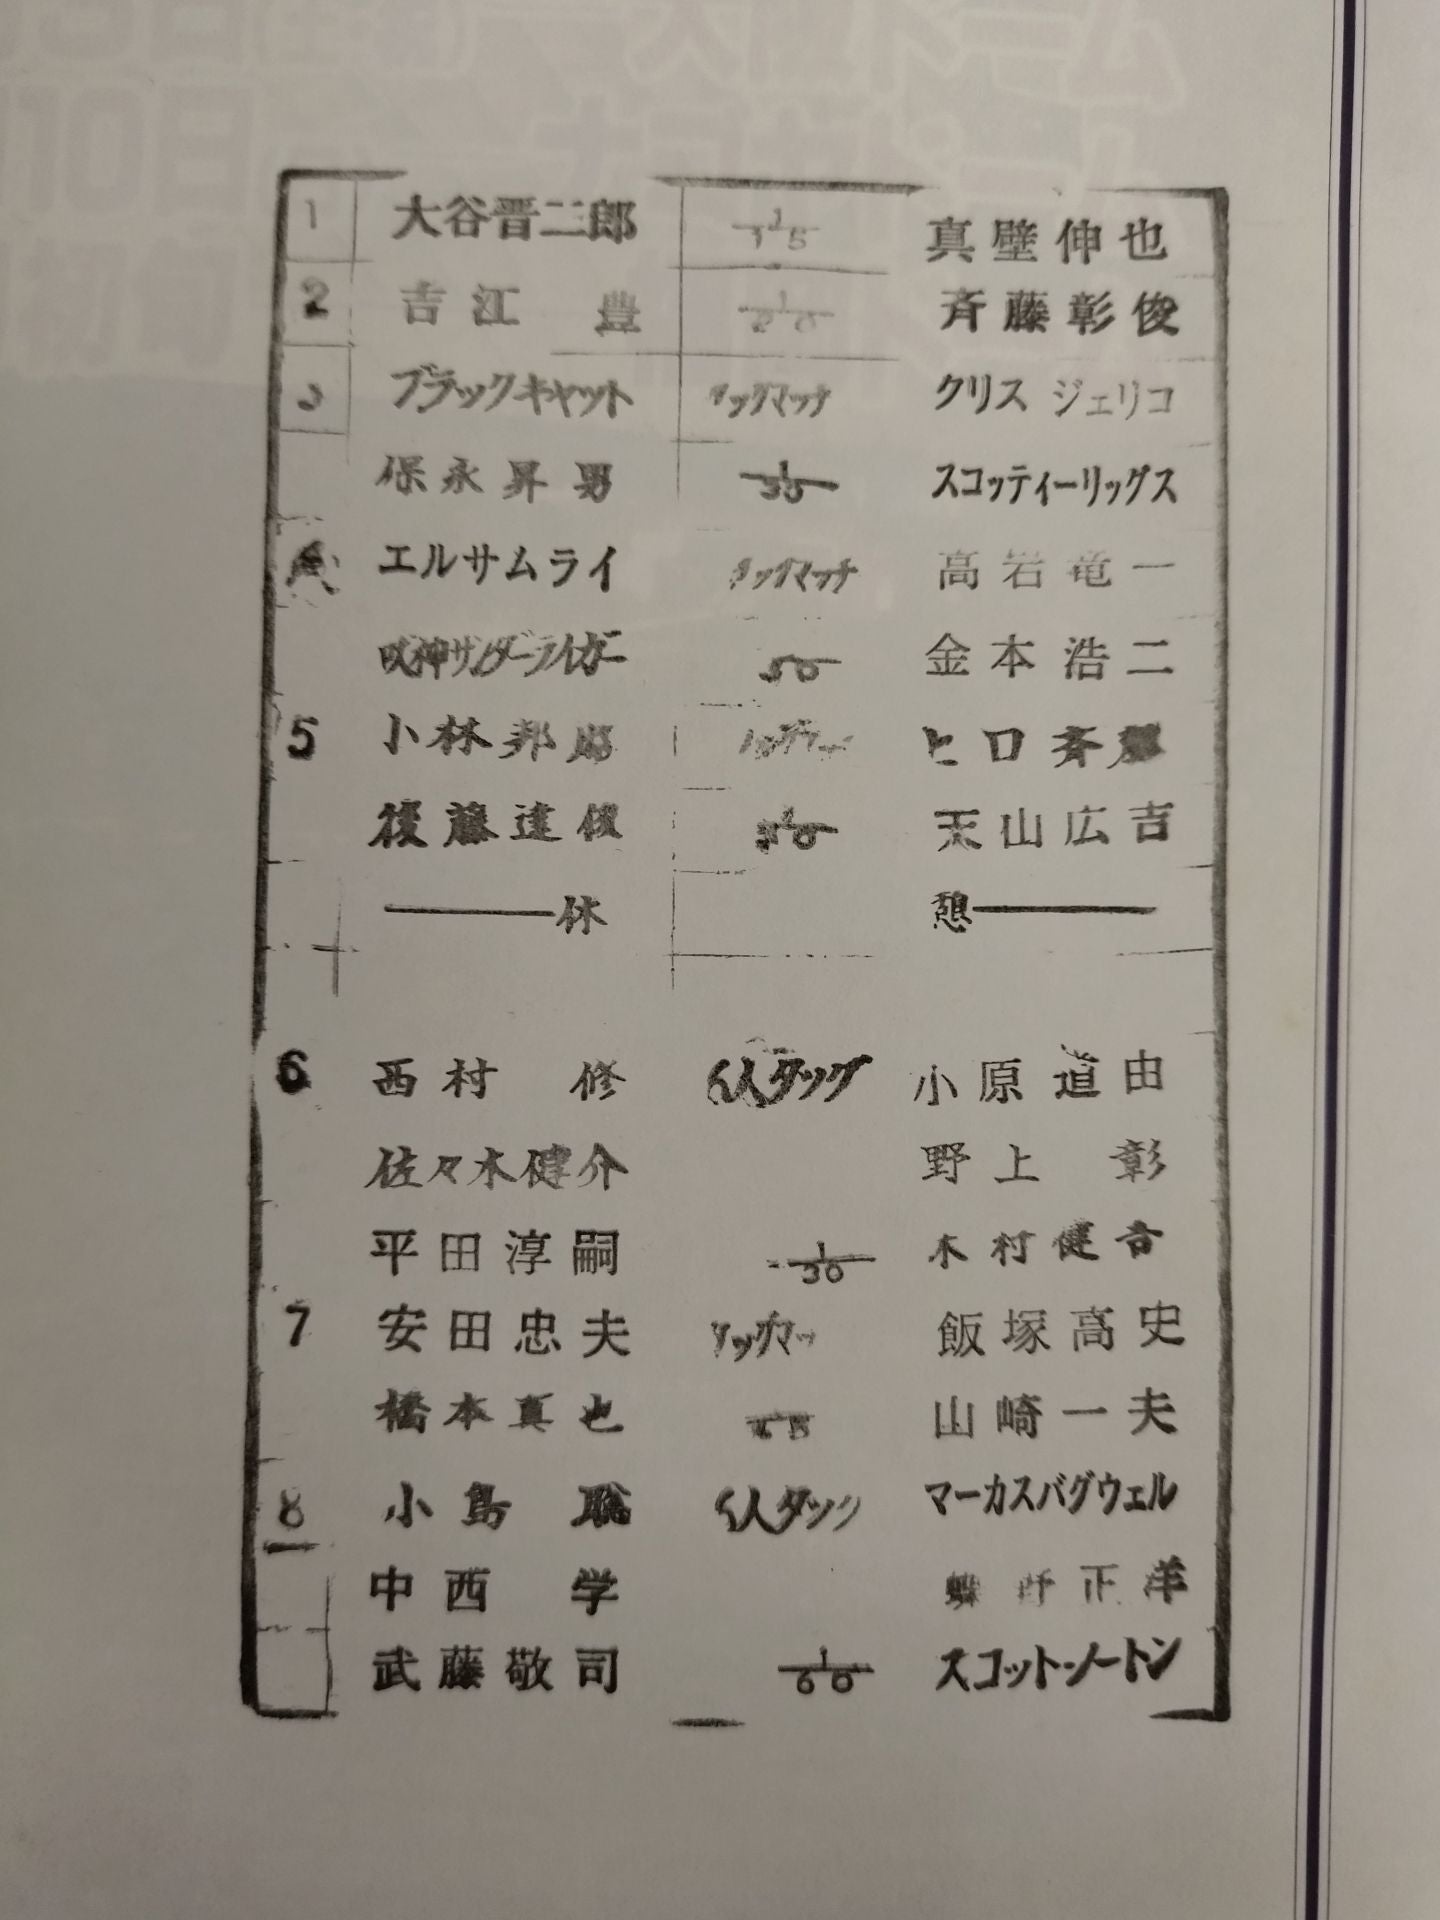 1 大谷晋二郎 1/15 真壁伸也
2 吉江 豊 1/20 斉藤彰俊
3 ブラックキャット タッグマッチ クリス ジェリコ
保永昇男 1/30 スコッティーリッグス
エルサムライ タッグマッチ 高岩竜一
獣神サンダーライガー 30 金本浩二
5 小林邦昭 タッグマッチ ヒロ斉藤
後藤達俊 1/30 天山広吉
休 憩
6 西村 修 6人タッグ 小原道由
佐々木健介 野上 彰
平田淳嗣 1/30 木村健吾
7 安田忠夫 タッグマッ 飯塚高史
橋本真也 45 山崎一夫
8 小島 聡 6人タッグ マーカスバグウェル
中西 学 蝶野正洋
武藤敬司 1/60 スコット・ノートン